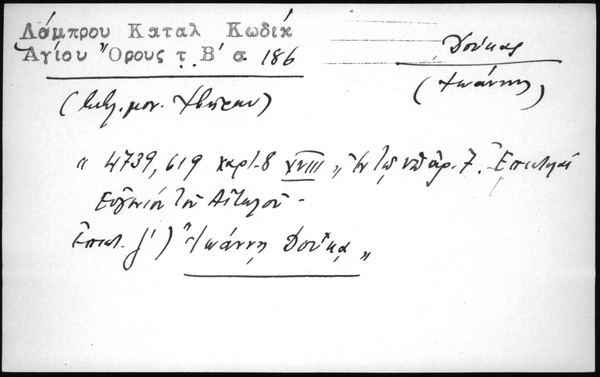 Λάμπρου Καταλ Κωδίκ
Ἁγίου Ὄρους τ. Β' α 186
Δούκας
(Ἰωάννης)
(Βιβλ. μον. Ἰβήρων)
" 4739, 619 χαρτ. 8 XVIII „ Ἐν τῷ ὑπ' ἀρ. 7. Ἐπιστολαὶ
Εὐγενίου τοῦ Αἰτωλοῦ -
Ἐπιστ. ') "Ἰωάννῃ Δούκᾳ „